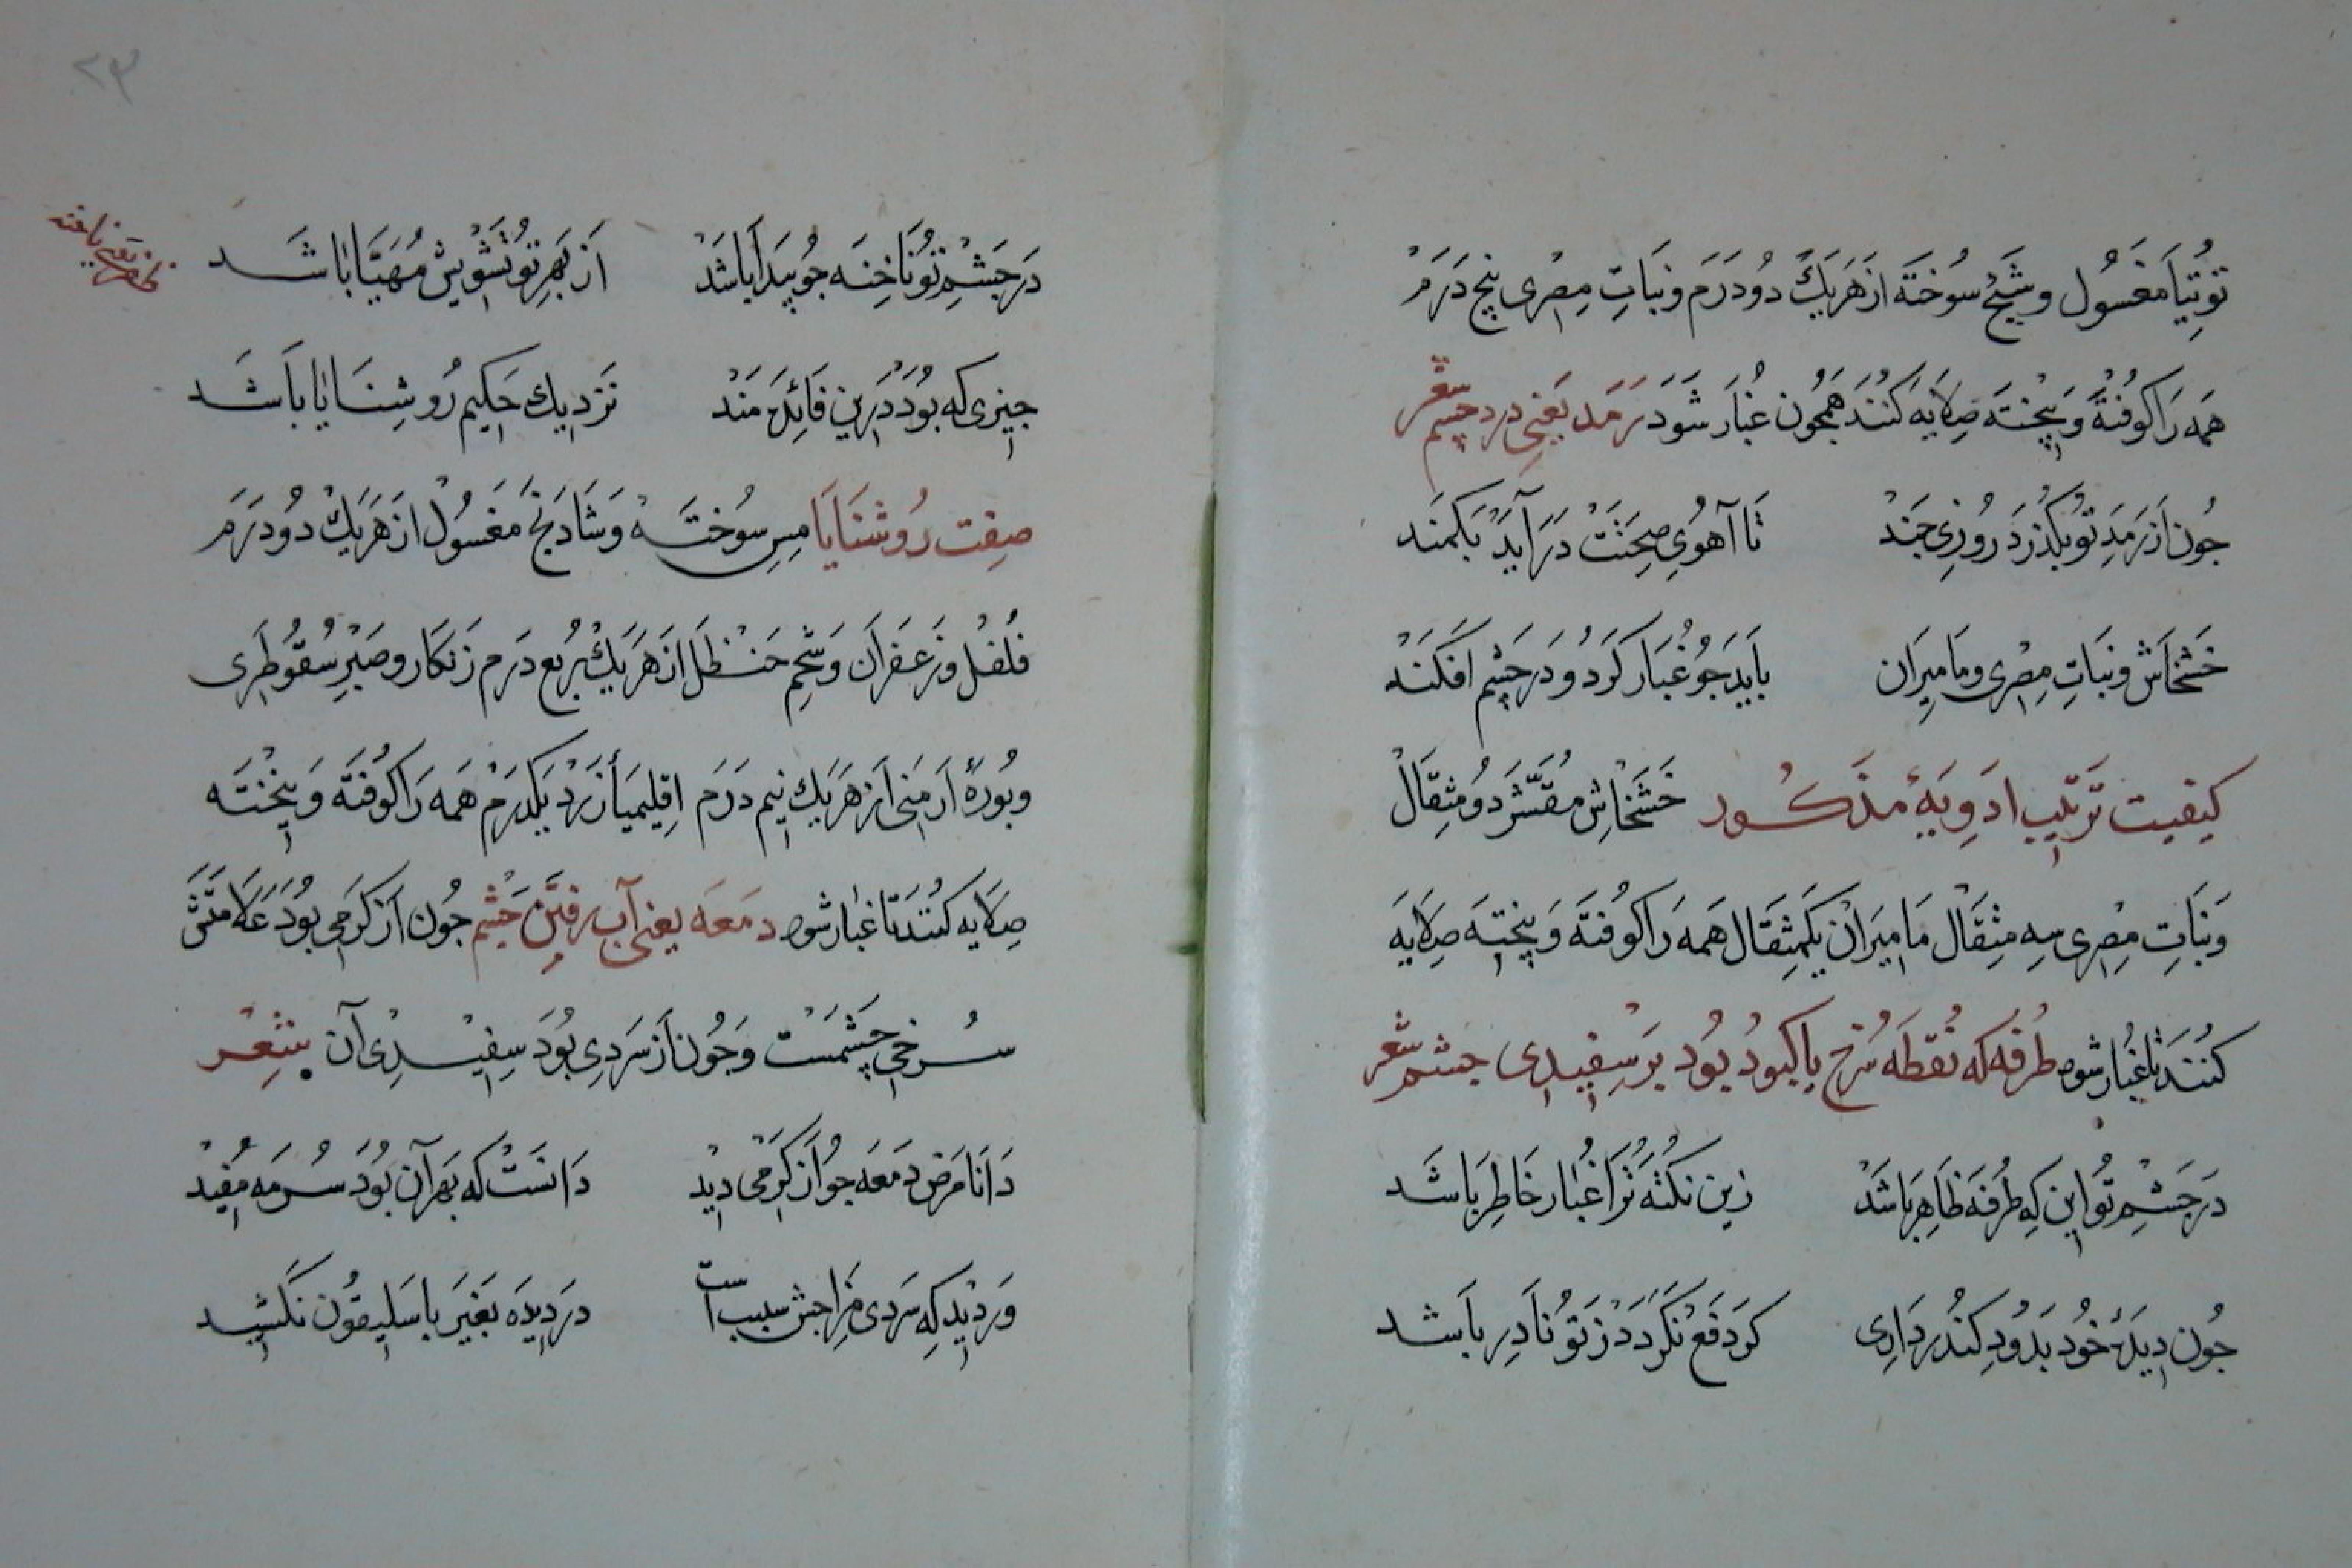 توتیا مغسول و شیح سوخته از هریك دو درم و نبات مصری پنج درم
همه را کوفته و پیخته صلایه کنند همچون غبار شود رمد یعنی درد چشم شعر
جون از رمد تو بکذرد روزی جند تا آهوی صحتت درآید بکمند
خشخاش و نبات مصری و مامیران باید جو غبار کرد و در چشم افکند
کیفیت ترتیب ادویهٔ مذکور خشخاش مقشر دو مثقال
و نبات مصری سه مثقال مامیران یکمثقال همه را کوفته و پیخته صلایه
کنند تا غبار شود طرفه که نقطه سرخ یا کبود بود بر سفیدی جشم شعر
در جشم تو این که طرفه ظاهر باشد زین نکته ترا غبار خاطر باشد
جون دیدهٔ خود بدود کندر داری کر دفع نکردد ز تو نادر باشد
۲۳
در جشم تو ناخنه جو پیدا باشد از بهر تو تشویش مهیا باشد
جیزی که بود درین فائده مند نزدیك حکیم روشنایا باشد
صفت روشنایا مس سوخته و شادنج مغسول از هریك دو درم
فلفل و زعفران و شحم حنظل از هریك بربع درم زنکار و صبر سقوطری
و بورهٔ ارمنی از هریك نیم درم اقلیمیا زرد یکدرم همه را کوفته و پیخته
صلایه کنند تا غبار شود دمعه یعنی آب رفتن جشم جون از کرمی بود علامتش
سرخی چشمست و جون از سردی بود سفیدی آن شعر
دانا مرض دمعه جو از کرمی دید دانست که بهر آن بود سرمه مفید
ور دید که سردی مزاجش سبب است در دیده بغیر باسلیقون نکشید